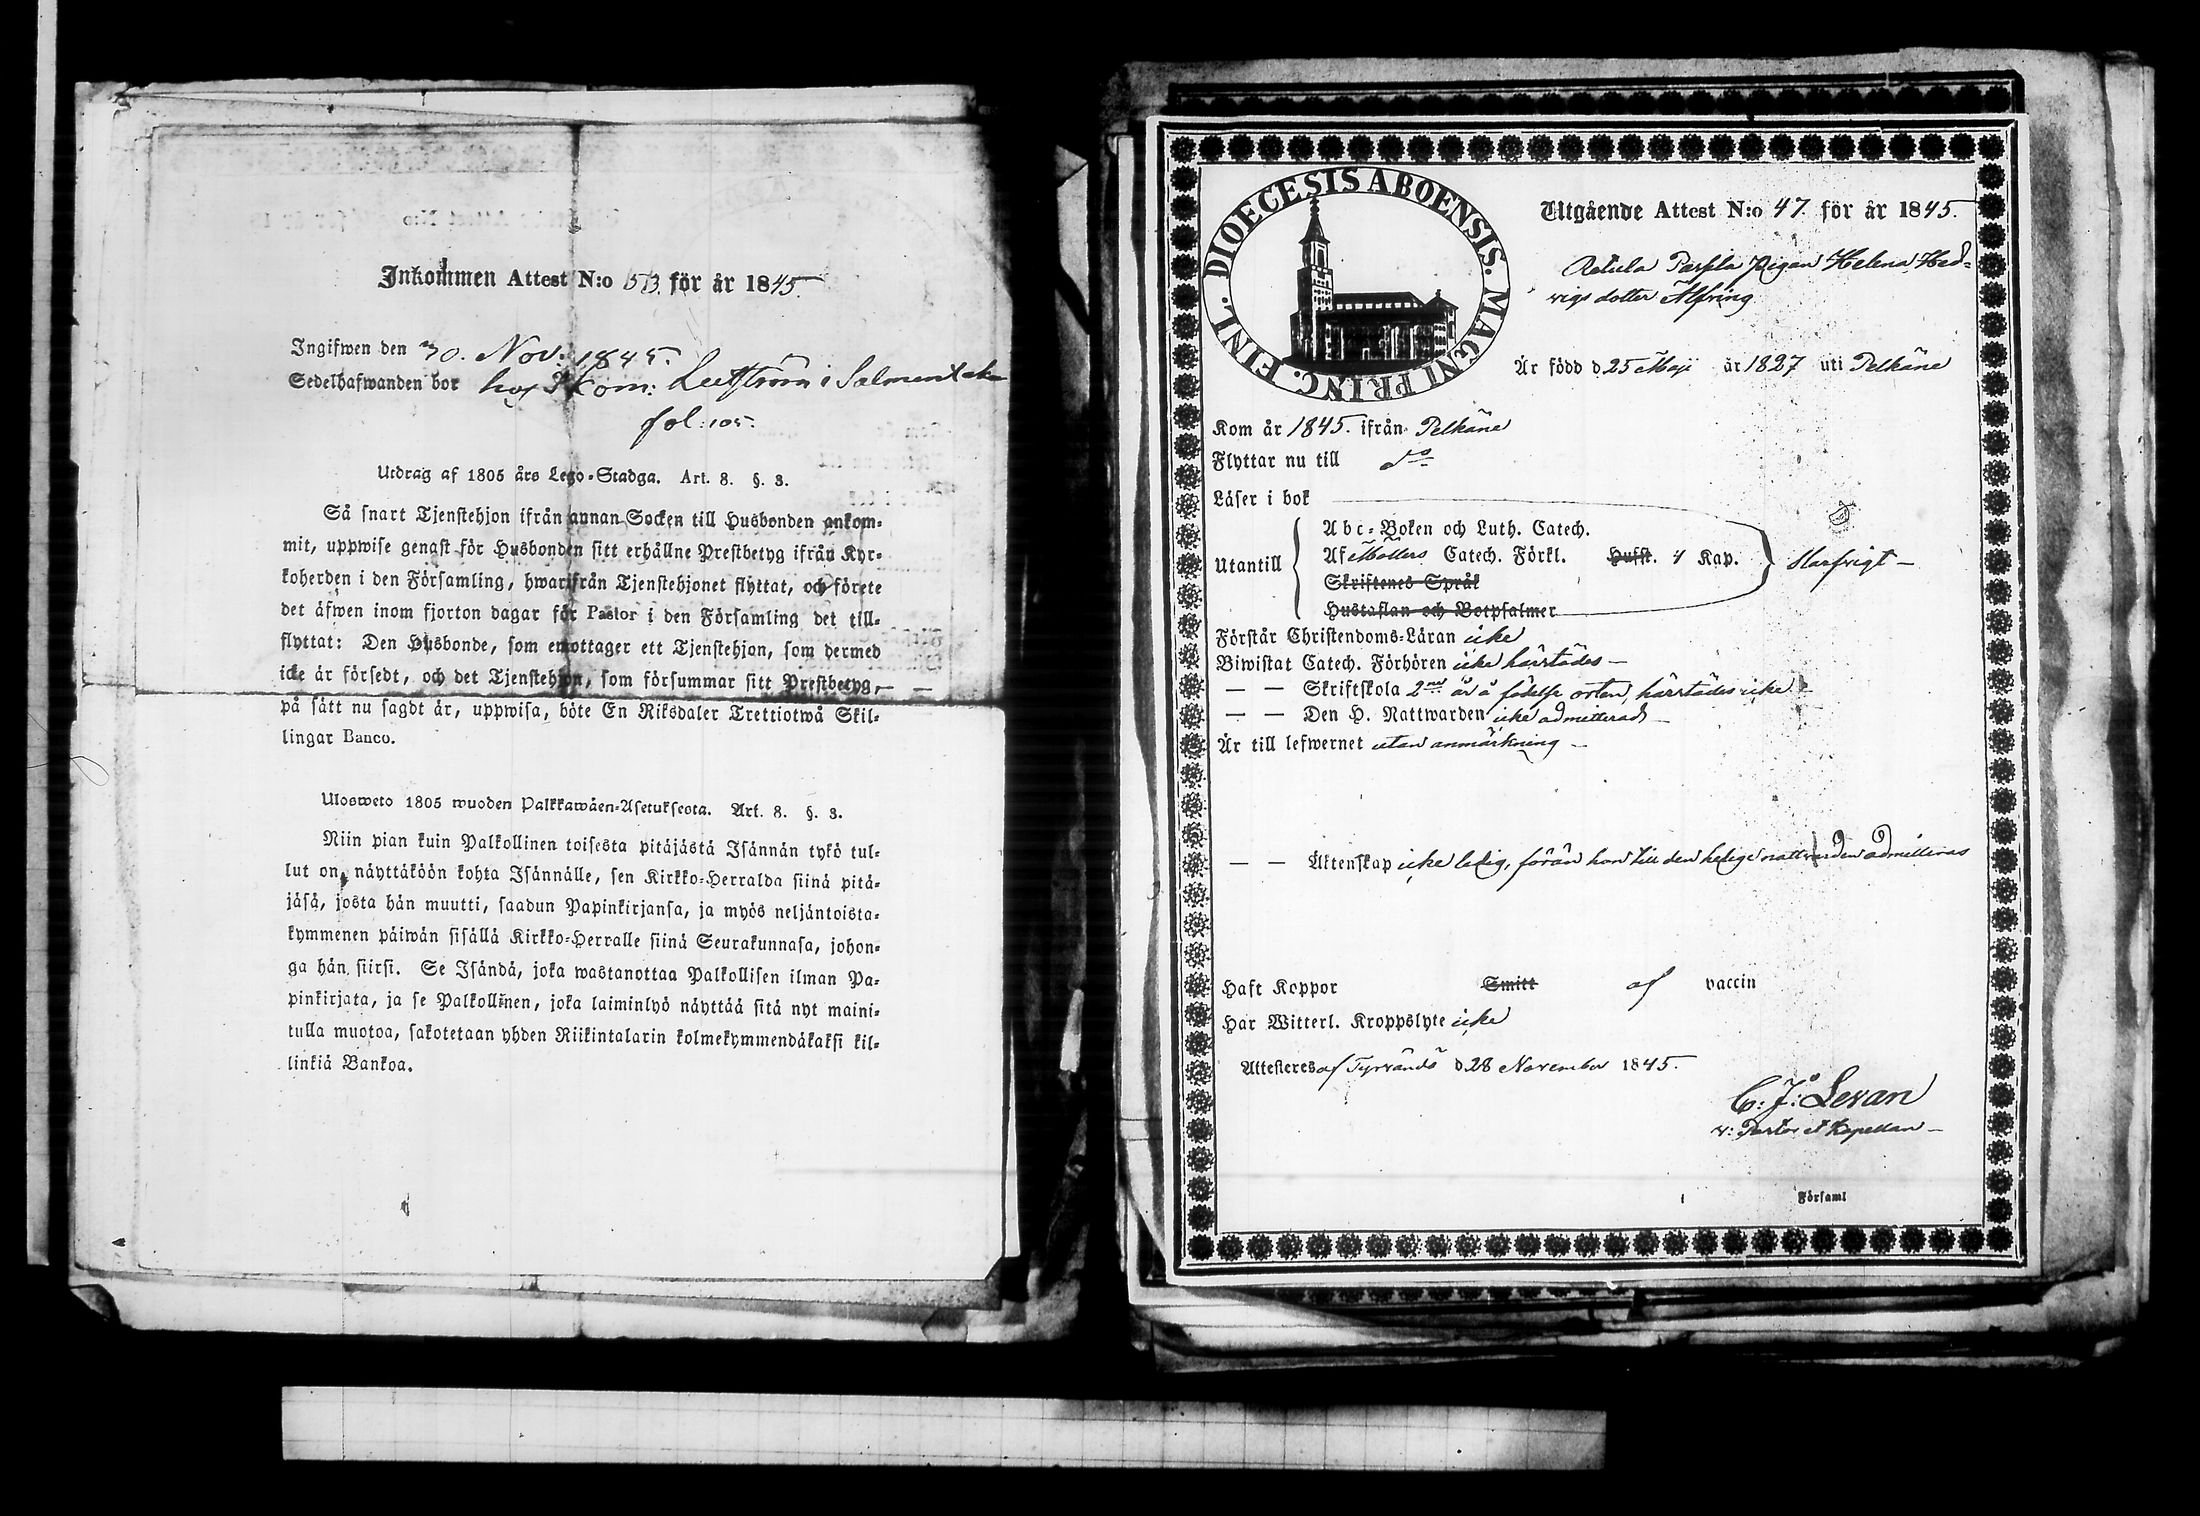 Inkommen Attest N:o 53. för år 1845.
Ingifwen den 30. Nov. 1845.
Sedelhafwanden bor hos Kom: i Salmentaka
fol: 105.
Utdrag af 1805 års Lego-Stadga. Art. 8. §. 3.
Så snart Tjenstehjon ifrån annan Socken till Husbonden ankom-
mit, uppwise genast för Husbonden sitt erhållne Prestbetyg ifrån Kyr-
koherden i den Församling, hwarifrån Tjenstehjonet flyttat, och förete
det äfwen inom fjorton dagar för Pastor i den Församling det till-
flyttat: Den Husbonde, som emottager ett Tjenstehjon, som dermed
icke är försedt, och det Tjenstehjon, som försummar sitt Prestbetyg,
på sätt nu sagdt är, uppwisa, böte En Riksdaler Trettiotwå Skil-
lingar Banco.
Ulosweto 1805 wuoden Palkkawäen-Asetuksesta. Art. 8. §. 3.
Niin pian kuin Palkollinen toisesta pitäjästä Isännän tykö tul-
lut on, näyttäköön kohta Isännälle, sen Kirkko-Herralda siinä pitä-
jäsä, josta hän muutti, saadun Papinkirjansa, ja myös neljäntoista-
kymmenen päiwän sisällä Kirkko-Herralle siinä Seurakunnasa, johon-
ga hän siirsi. Se Isändä, joka wastanottaa Palkollisen ilman Pa-
pinkirjata, ja se Palkollinen, joka laiminlyö näyttää sitä nyt maini-
tulla muotoa, sakotetaan yhden Riikintalarin kolmekymmendäkaksi kil-
linkiä Bankoa.
DIOECESIS ABOENSIS. MAGNI PRINC. FINL.
Utgående Attest N:o 47. för år 1845.
Retula Parpla Pigan Helena Hed-
vigs dotter Alfving
Är född d. 25 Maji år 1827 uti Pelkäne
Kom år 1845. ifrån Pelkäne
Flyttar nu till do
Läser i bok
Abc-Boken och Luth. Catech.
Utantill Af Möllers Catech. Förkl. Husst. 4 Kap. Slarfvigt —
Skriftenes Språk
Hustaflan och Botpsalmer
Förstår Christendoms-Läran icke
Biwistat Catech. Förhören icke härstädes —
— — Skriftskola 2ne år å födelse orten, härstädes icke
— — Den H. Nattwarden icke admitterad —
Är till lefwernet utan anmärkning —
— — Äktenskap icke ledig, förän hon till den helige nattvarden admitteras
Haft Koppor Smitt af vaccin
Har Witterl. Kroppslyte icke
Attesteres af Tyrvändö d 28 November 1845.
C: J: Levan
v: Pastor et Kapellan —
i Församl